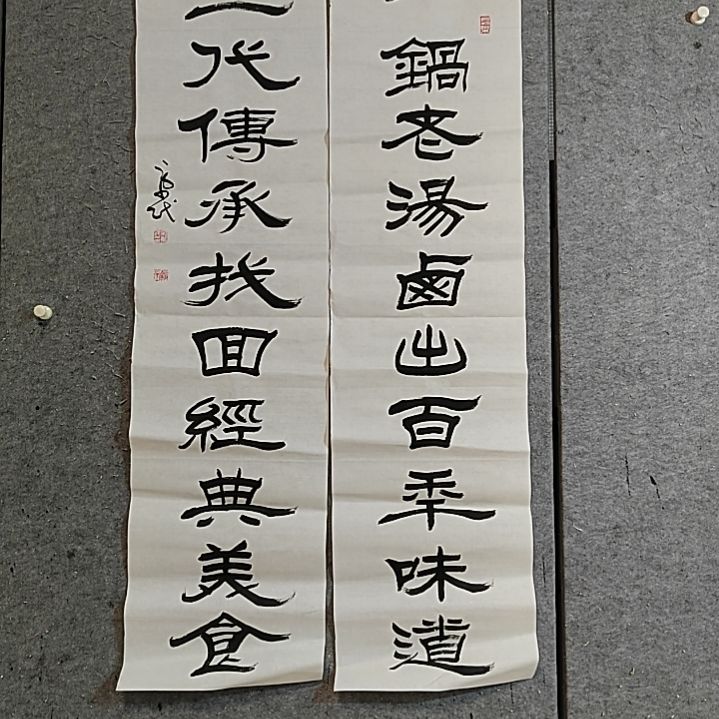 鍋老湯鹵出百年味道
代傳承找回經典美食